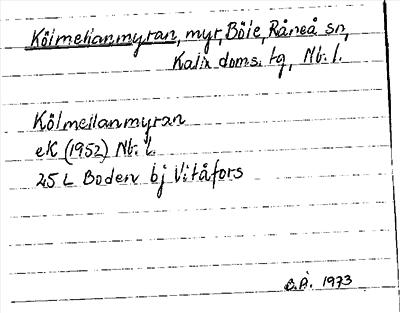 Kölmeilanmyran, myr, Böle, Råneå sn,
Kalix doms. tg, Nb. l.
Kölmeilanmyran
eK (1952) Nb. l.
25 L Boden bj Vitåfors
C.Å. 1973